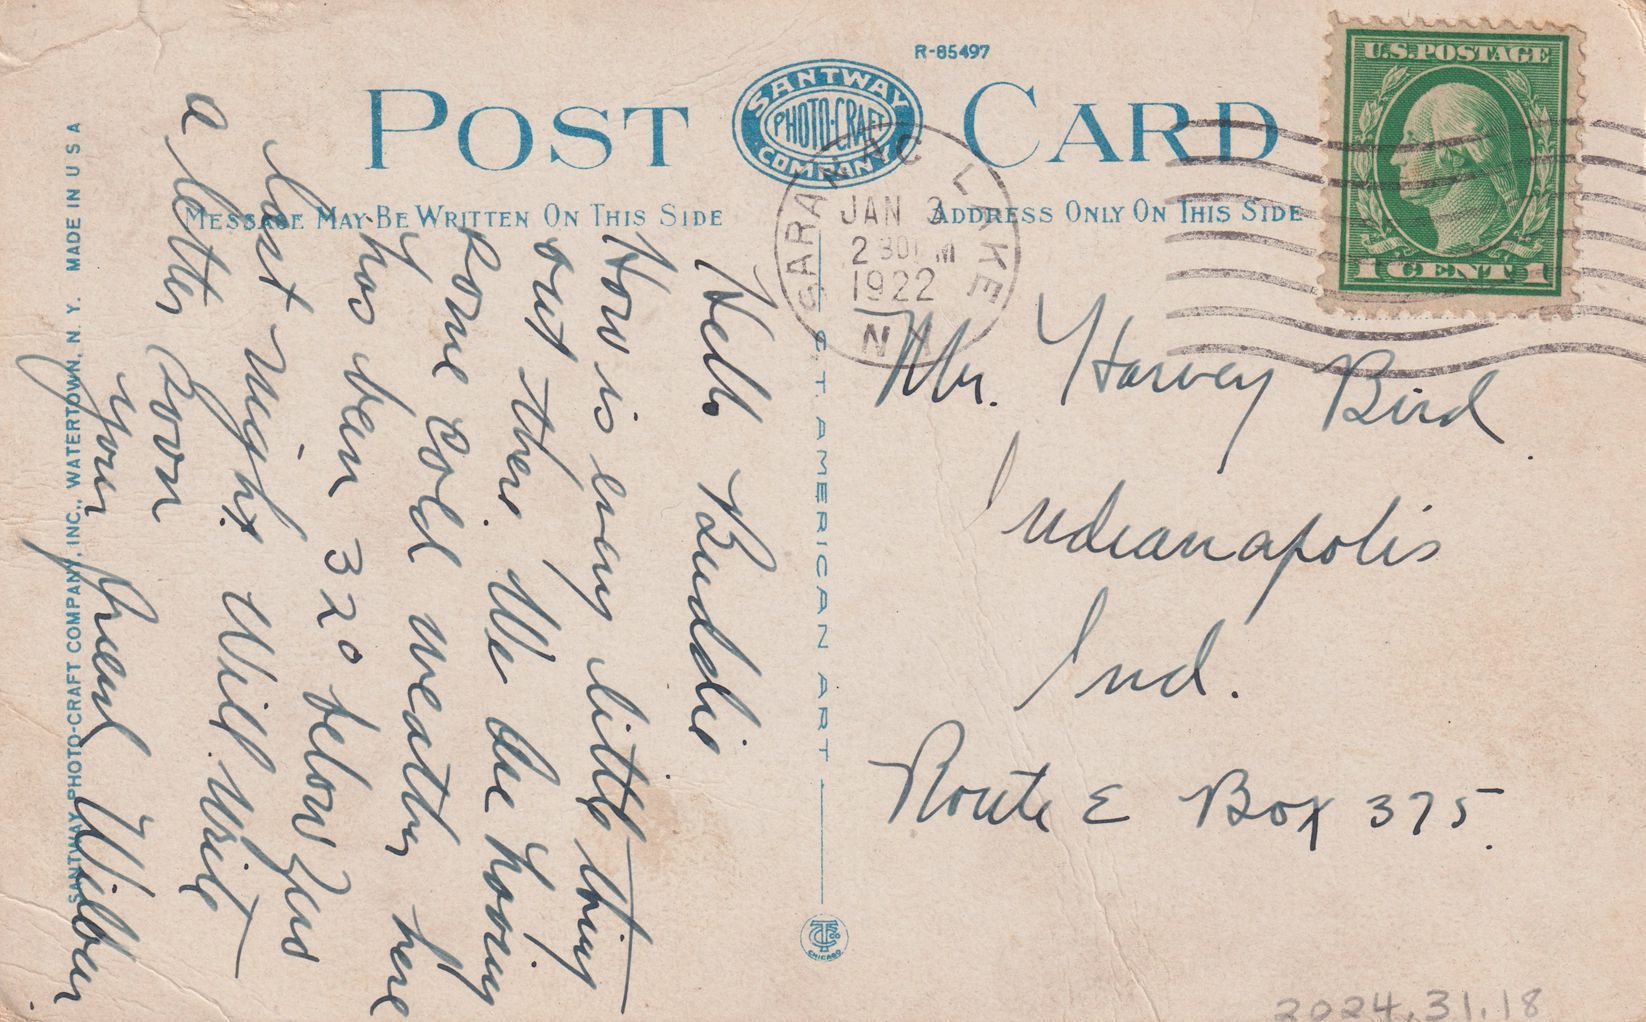 R-85497
POST CARD
SANTWAY
PHOTO-CRAFT
COMPANY
MESSAGE MAY BE WRITTEN ON THIS SIDE
ADDRESS ONLY ON THIS SIDE
SARANAC LAKE
JAN 3
2 30 PM
1922
N.Y.
U.S. POSTAGE
1 CENT 1
Hello Buddie
How is every little thing
out there. We are having
some cold weather here
has been 32° below Zero
last night Will write
a letter soon
your friend Wilbur
Mr. Harvey Bird
Indianapolis
Ind.
Route E Box 375.
C. T. AMERICAN ART
CHICAGO
SANTWAY PHOTO-CRAFT COMPANY, INC., WATERTOWN, N. Y. MADE IN U S A
2024.31.18